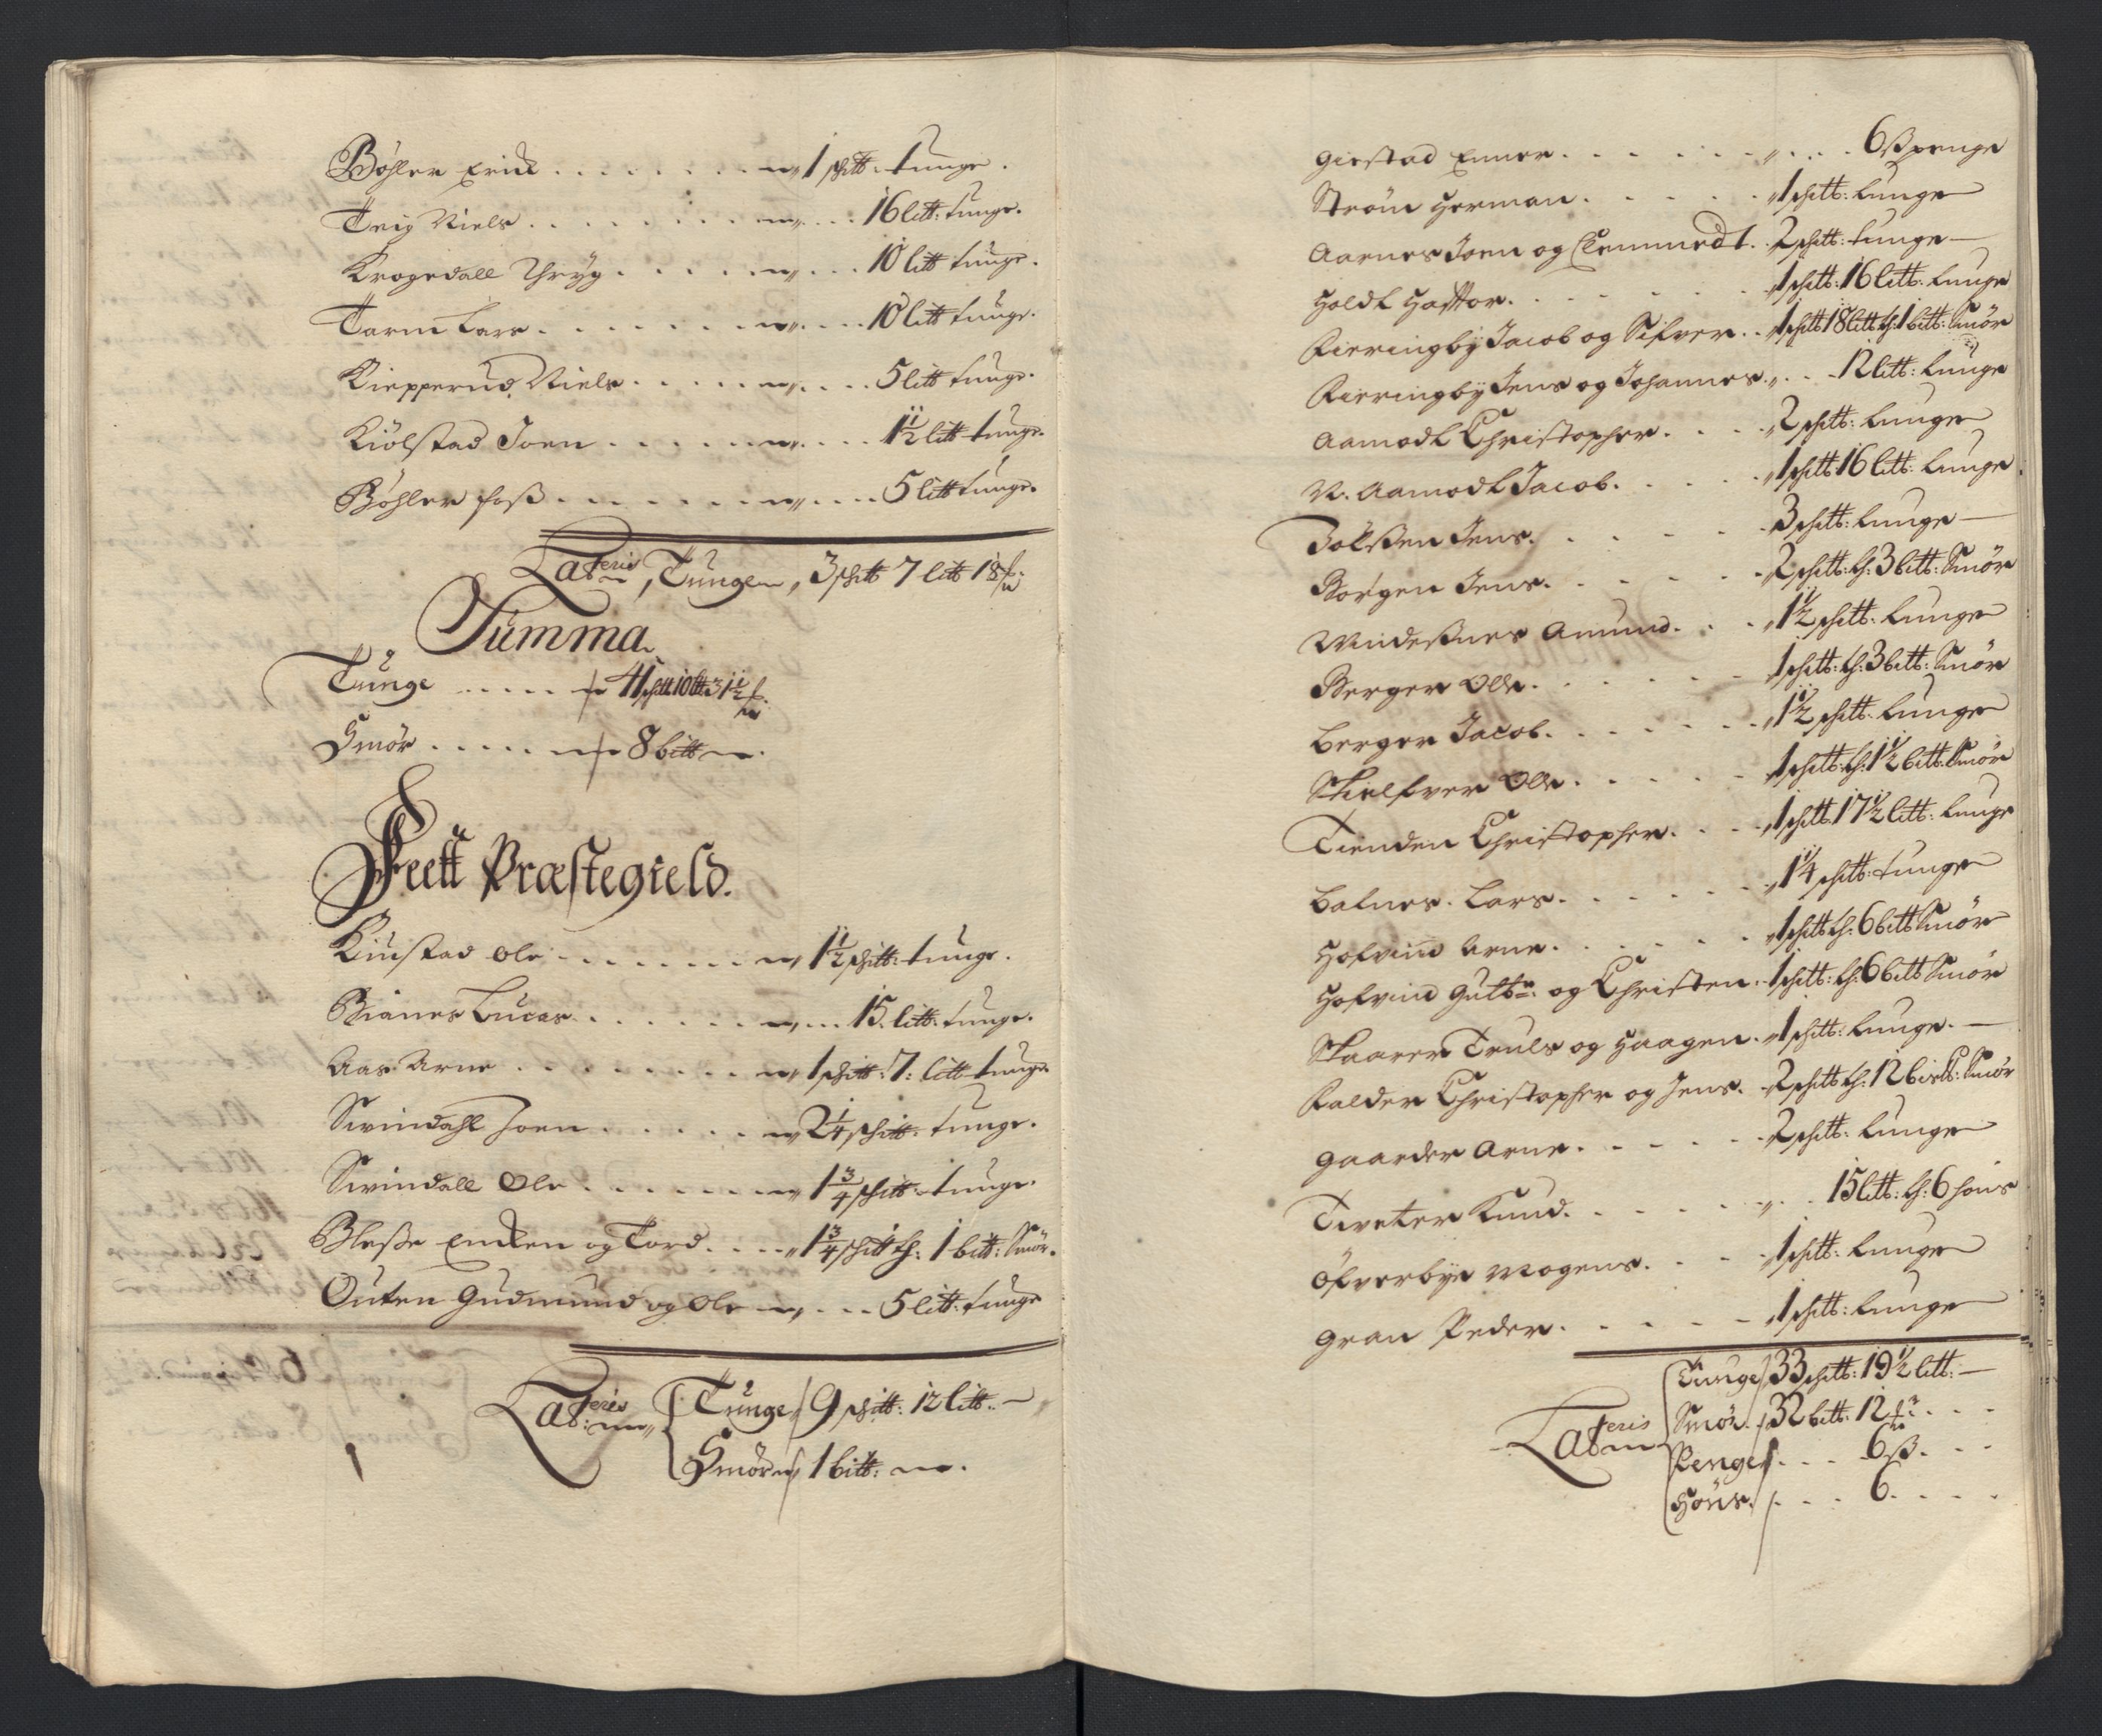 Böhler Erick . . . . . . . . 1 schtt: tunge.
Teig Niels . . . . . . . . . . 16 litt: tunge.
Krogedall Thryg . . . . . . . . 10 litt tunge.
Tarm Lars . . . . . . . . . . 10 litt tunge.
Kiepperud Niels . . . . . . . . 5 litt tunge.
Kiölstad Joen . . . . . . . . . 1½ litt tunge.
Böhler foss . . . . . . . . . . 5 litt tunge.
Lateris, Tunge 3 schtt 7 litt 18
Summa.
Tunge . . . . . 41 schtt 10 litt
Smör . . . . . 8 bitt
Feett Præstegield.
Kinstad Ole . . . . . . . . 1½ schtt: tunge.
Bianes Lucas . . . . . . . . . 15 litt: tunge.
Aas Arne . . . . . . . . 1 schtt: 7: litt tunge
Svindahl Joen . . . . . . 2¼ schtt: tunge.
Svindall Ole . . . . . . . 1¾ schtt: tunge.
Blesse Encken og Tord . . . . 1¾ schtt h: 1 bitt: Smör.
Outen Gudmund og Ole . . . 5 litt: tunge
Lateris Tunge 9 schtt: 12 litt: —
Smör 1 bitt:
Gierstad Enner . . . . . . . . . . 6 ß penge
Ström Herman . . . . . 1 schtt: tunge
Aarnes Joen og Clemmedt . 2 schtt: tunge —
Holdt . . . . . . . . 1 schtt: 16 litt: tunge
Fierringby Jacob og Sifver . . 1 schtt 18 litt h: 1 bitt: Smör
Fierringby Jens og Johannes . . . 12 litt: tunge
Aamodt Christopher . . . . 2 schtt: tunge
N. Aamodt Jacob . . . . . . 1 schtt 16 litt: tunge
Jens . . . . . . . . 3 schtt: tunge —
Borgen Jens . . . . . . . . 2 schtt: h: 3 bitt: Smör
Windessnes Amund . . . 1½ schtt: tunge
Berger Ole . . . . . . . 1 schtt: h: 3 bitt: Smör
Berger Jacob . . . . . . . . 1½ schtt: tunge
Skielfver Ole . . . . . . 1 schtt: h: 1½ bitt: Smör
Tienden Christopher . . . . 1 schtt: 17½ litt: tunge
Balnes Lars . . . . . . . . 1¼ schtt: tunge
Hofvind Arne . . . . . . . 1 schtt h: 6 bitt Smör
Hofvind Gulb: og Christen . 1 schtt: h: 6 bitt Smör
Skaarer Truls og Haagen . 1 schtt: tunge. —
Falder Christopher og Jens . 2 schtt h: 12 bitt: Smör
Gaarder Arne . . . . . . . 2 schtt: tunge
Tveter Knud . . . . . . . . 15 litt: h: 6 höns
Öfverbye Mogens . . . . 1 schtt: tunge
Gran Peder . . . . . . 1 schtt: tunge
Lateris Tunge 33 schtt: 19½ litt: —
Smör 32 bitt: 12 . . .
Penge . . . 6 ß . . .
Höns . . . . 6 . . . .